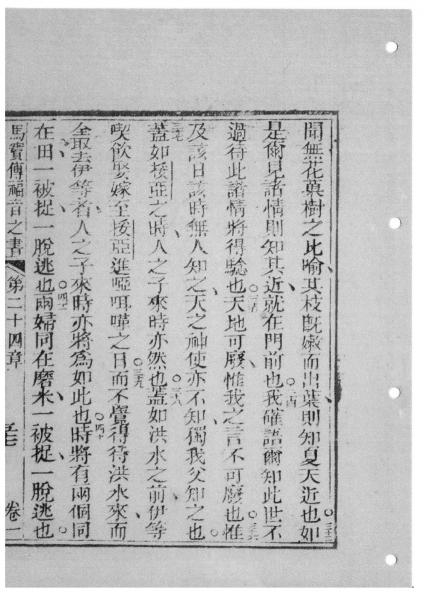 聞無花菓樹之比喻其枝旣嫩而出葉則知夏天近也如
是爾見諸情則知其近就在門前也我確語爾知此世不
過待此諸情將得驗也天地可廢惟我之言不可廢也惟
及該日該時無人知之天之神使亦不知獨我父知之也
蓋如挼亞之時人之子來時亦然也蓋如洪水之前伊等
喫飲娶嫁至挼亞進啞咡嘩之日而不覺得待洪水來而
全取去伊等者人之子來時亦將爲如此也時將有兩個同
在田一被捉一脫逃也兩婦同在磨米一被捉一脫逃也
馬竇傳福音之書 第二十四章 卷一